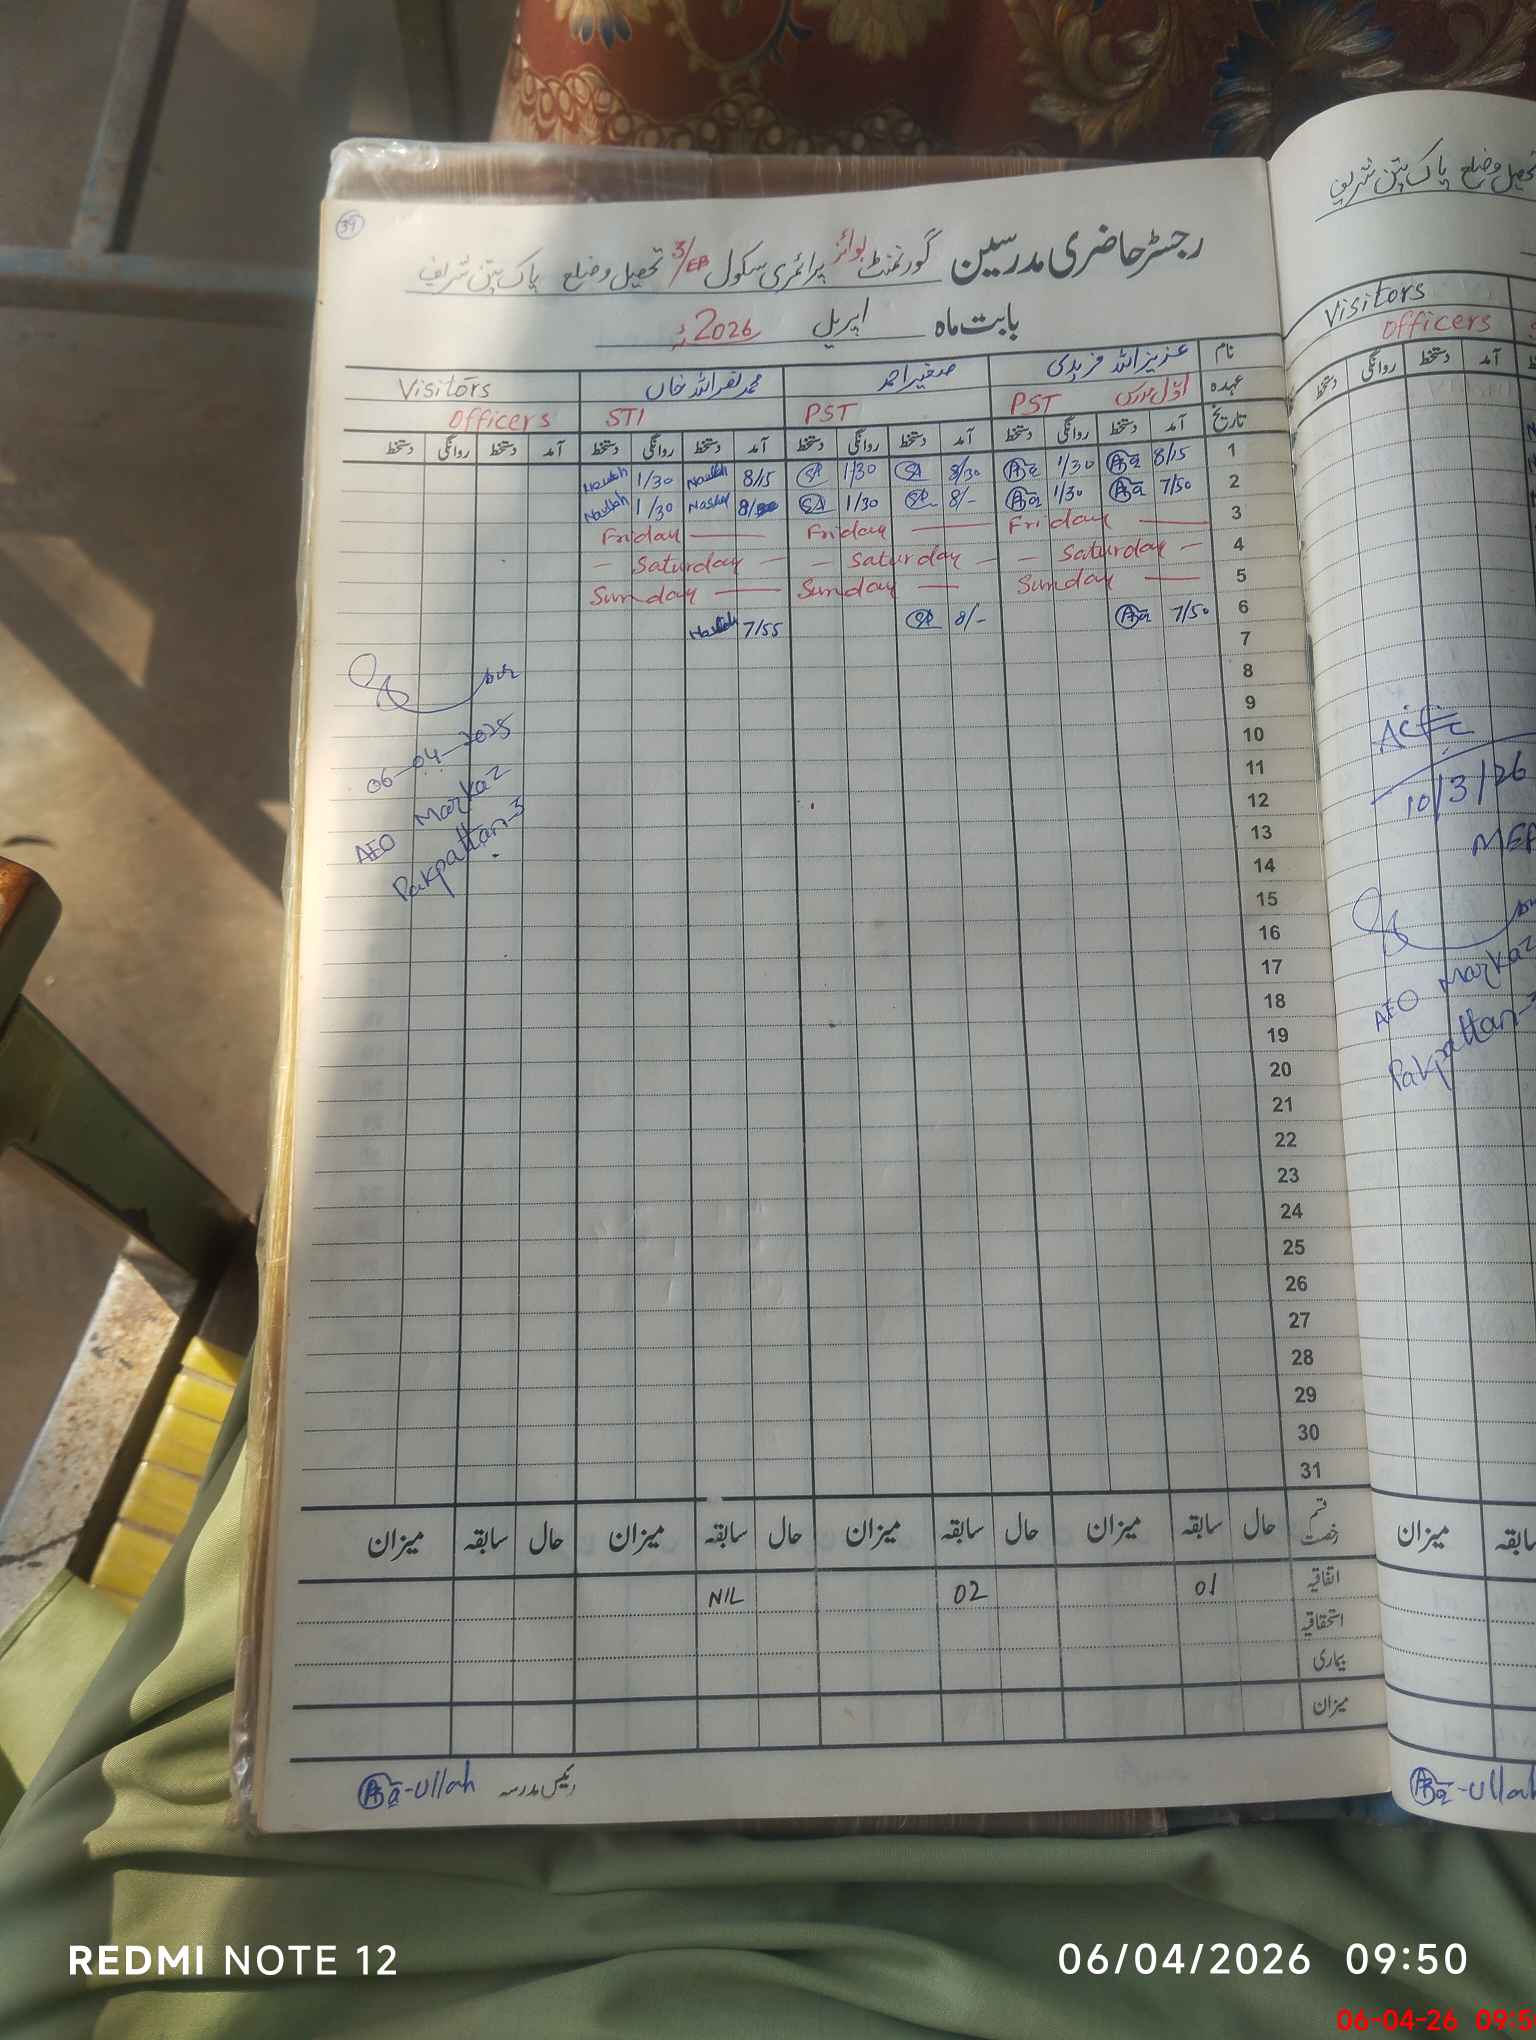 39
رجسٹر حاضری مدرسین گورنمنٹ بوائز پرائمری سکول 3/EB تحصیل و ضلع پاک پتن شریف
بابت ماہ اپریل 2026ء
نام عزیز اللہ فریدی صغیر احمد محمد نصر اللہ خاں Visitors
عہدہ PST PST STI Officers
تاریخ آمد دستخط روانگی دستخط آمد دستخط روانگی دستخط آمد دستخط روانگی دستخط آمد دستخط روانگی دستخط
1 8/15 1/30 8/30 1/30 8/15 1/30
2 7/50 1/30 8/- 1/30 1/30
3 Friday Friday Friday
4 Saturday Saturday Saturday
5 Sunday Sunday Sunday
6 7/50 8/- 7/55
7
8
9
10
11
12
13
14
15
16
17
18
19
20
21
22
23
24
25
26
27
28
29
30
31
06-04-2025
AEO Markaz
Pakpattan-3
قسم رخصت حال سابقہ میزان حال سابقہ میزان حال سابقہ میزان حال سابقہ میزان
اتفاقیہ 01 02 NIL
استحقاقیہ
بیماری
میزان
رئیس مدرسہ
تحصیل و ضلع پاک پتن شریف
Visitors
Officers
آمد دستخط روانگی دستخط
10/3/26
AEO Markaz
Pakpattan-3
سابقہ میزان
REDMI NOTE 12
06/04/2026 09:50
06-04-26 09:5